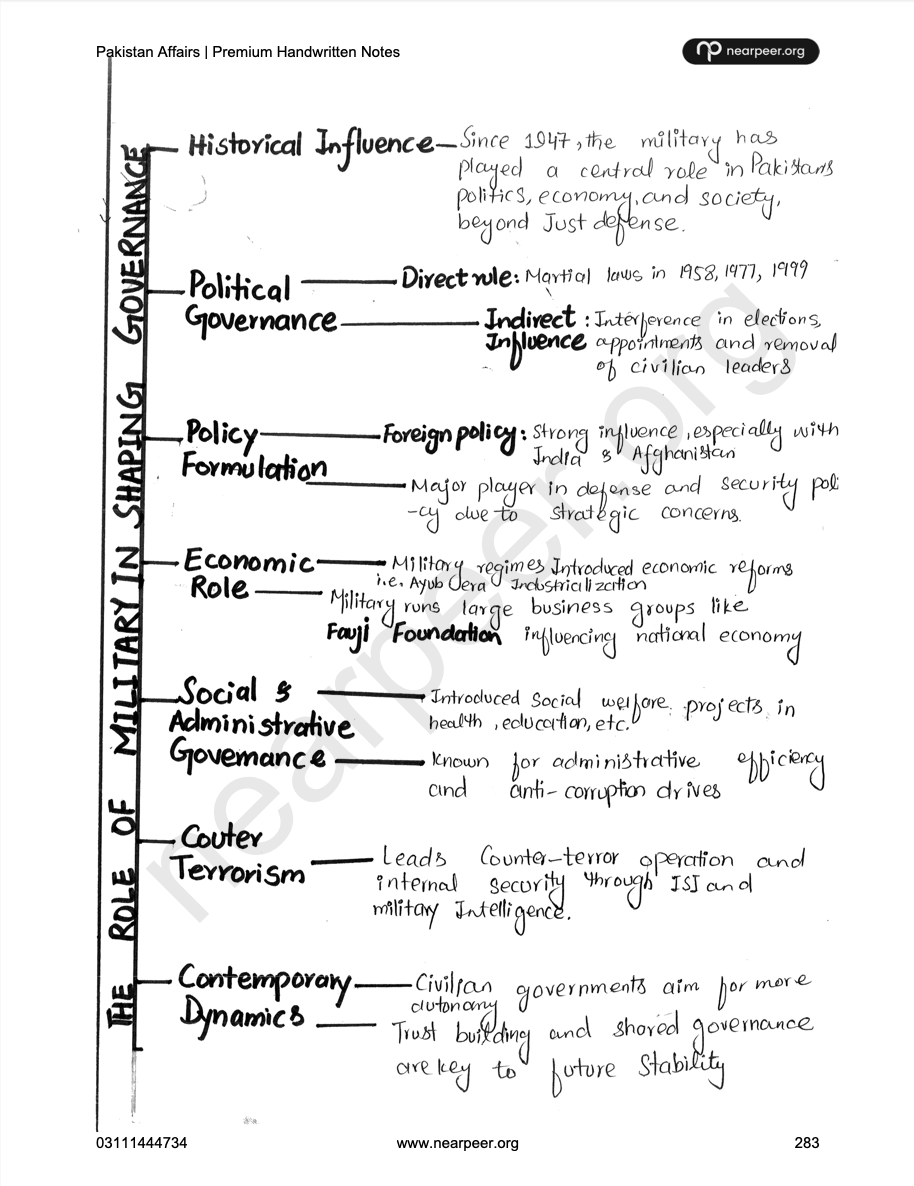 Pakistan Affairs | Premium Handwritten Notes
nearpeer.org
THE ROLE OF MILITARY IN SHAPING GOVERNANCE
Historical Influence — Since 1947, the military has
played a central role in Pakistans
politics, economy, and society,
beyond Just defense.
Political — Direct rule: Martial laws in 1958, 1977, 1999
Governance — Indirect : Interference in elections,
Influence appointments and removal
of civilian leaders
Policy — Foreign policy: Strong influence, especially with
India & Afghanistan
Formulation
— Major player in defense and security poli
-cy due to strategic concerns.
Economic — Military regimes Introduced economic reforms
i.e. Ayub era Industrialization
Role — Military runs large business groups like
Fauji Foundation influencing national economy
Social & — Introduced Social welfare projects in
health, education, etc.
Administrative
Governance — Known for administrative efficiency
and anti-corruption drives
Couter
Terrorism — Leads Counter-terror operation and
internal security through ISI and
military Intelligence.
Contemporary — Civilian governments aim for more
autonomy
Dynamics — Trust building and shared governance
are key to future Stability
nearpeer.org
03111444734
www.nearpeer.org
283